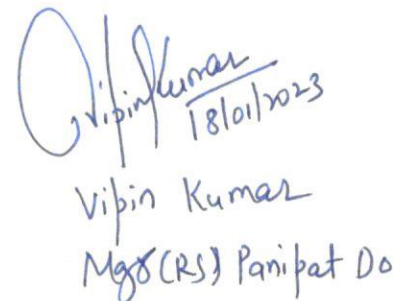 Vipin Kumar
18/01/2023
Vipin Kumar
Mgr (RS) Panipat Do